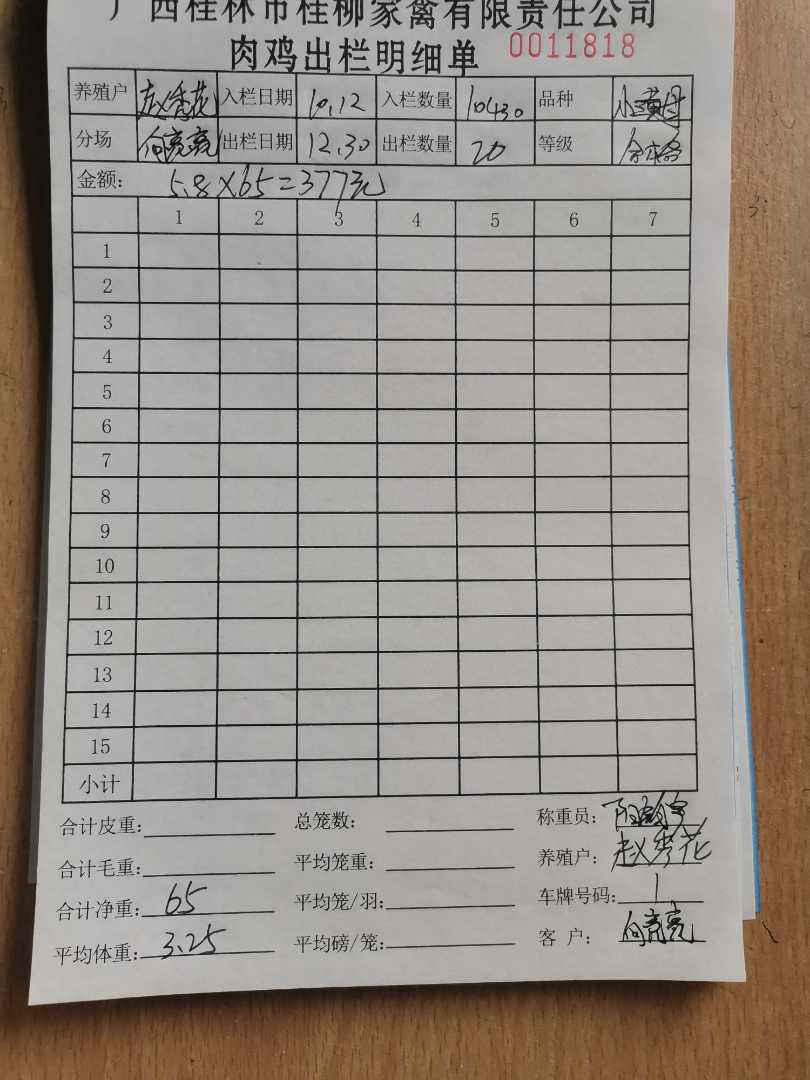 广西桂林市桂柳家禽有限责任公司
肉鸡出栏明细单 0011818
养殖户 赵秀花 入栏日期 10.12 入栏数量 10430 品种
分场 向亮亮 出栏日期 12.30 出栏数量 20 等级 合格
金额: 5.8×65=377元
1 2 3 4 5 6 7
1
2
3
4
5
6
7
8
9
10
11
12
13
14
15
小计
合计皮重: 总笼数: 称重员:
合计毛重: 平均笼重: 养殖户: 赵秀花
合计净重: 65 平均笼/羽: 车牌号码: 1
平均体重: 3.25 平均磅/笼: 客 户: 向亮亮